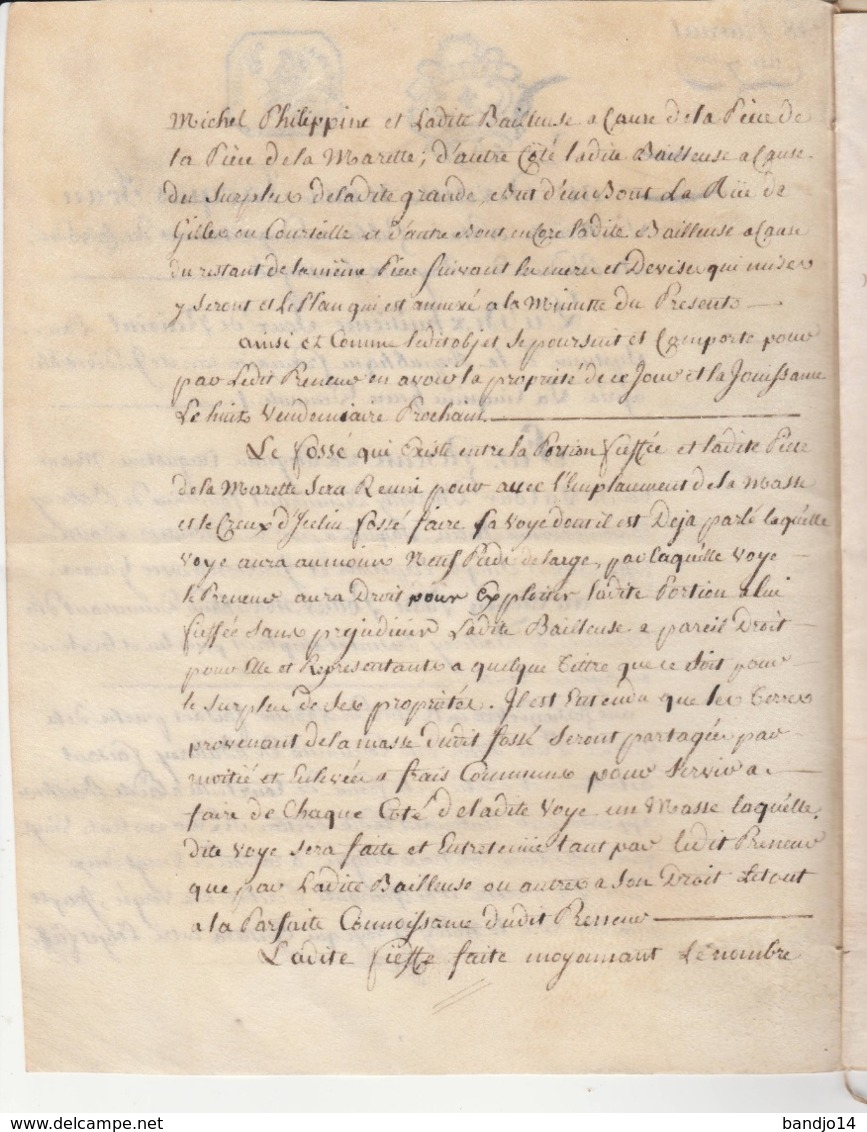 Michel Philippine et Ladite Bailleuse a Cause de la Piece de
la Piece de la Marette; d'autre Côté ladite Bailleuse a Cause
du Surplus de ladite grande, et Bout d'un Bout La Rüe de
Gilles ou Courteille et d'autre Bout encore ladite Bailleuse a Cause
du restant de la même Piece suivant les meres et Devises qui mises
y seront et le Plan qui est annexé a la Minutte du Present
ainsi et Comme ledit objet se poursuit et Comporte pour
par Ledit Preneur en avoir la propriété de ce Jour et la Jouissance
Le huit Vendemiaire Prochain.
Le fossé qui Existe entre la Portion fieffée et ladite Piece
de la Marette sera Reuni pour avec l'Emplacement de la Masse
et le Creux d'Jcelui fossé faire la voye dont il est Deja parlé laquelle
voye aura au moins Neuf Pieds de large, par laquelle voye
le Preneur aura Droit pour Exploiter ladite Portion a lui
fieffée sans prejudicier Ladite Bailleuse a pareil Droit
pour Elle et Representants a quelque tittre que ce soit pour
le surplus de ses propriétés. Jl est Entendu que les terres
provenant de la masse dudit fossé seront partagées par
moitié et Enlevées a frais Communs pour servir a
faire de Chaque Coté de ladite voye un Masse laquelle
dite voye sera faite et Entretenüe tant par ledit Preneur
que par Ladite Bailleuse ou autres a son Droit Le tout
a la Parfaite Connoissance dudit Preneur
Ladite fieffe faite moyennant Le nombre
delcampe.net
bandjo14